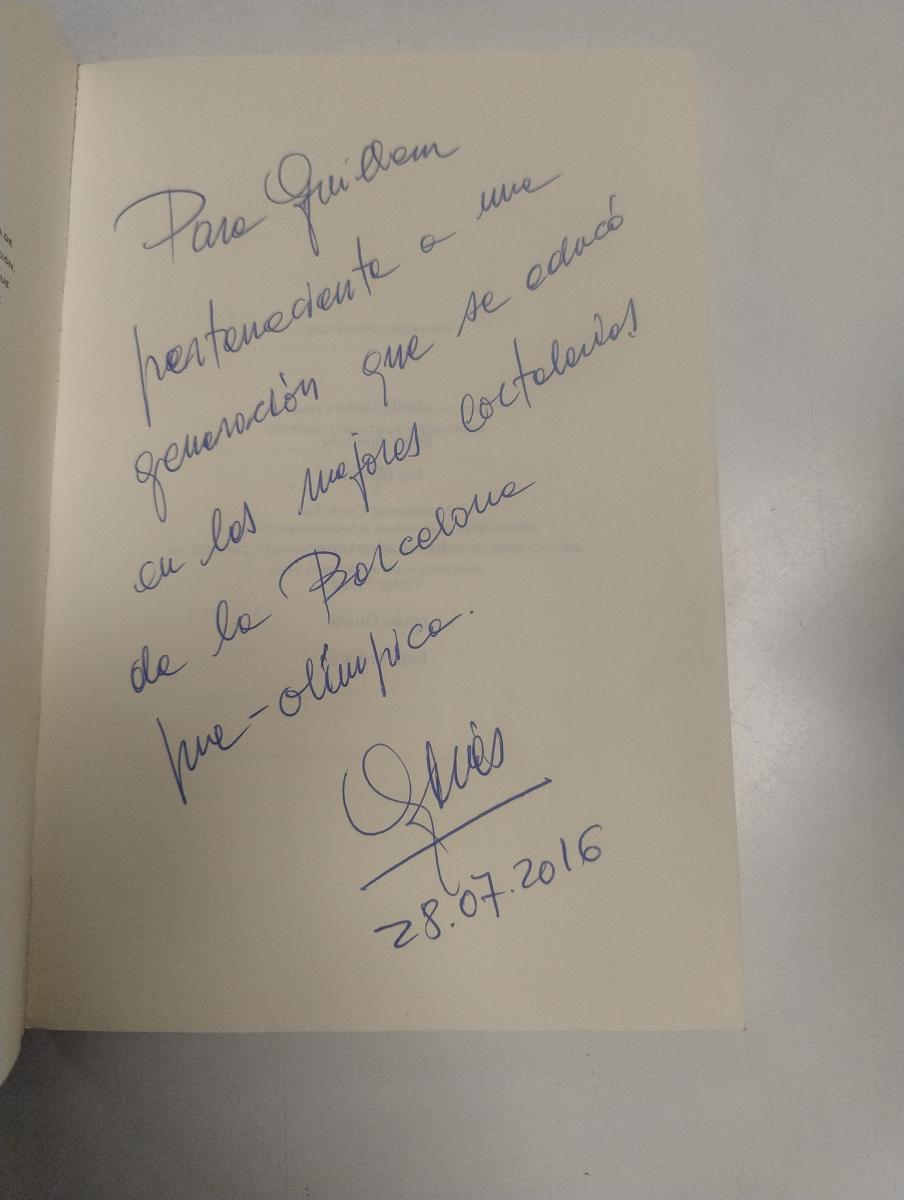 Para Guillem
perteneciente a una
generación que se educó
en las mejores coctelerías
de la Barcelona
pre-olímpica.
28.07.2016
DE
CIÓN,
QUE